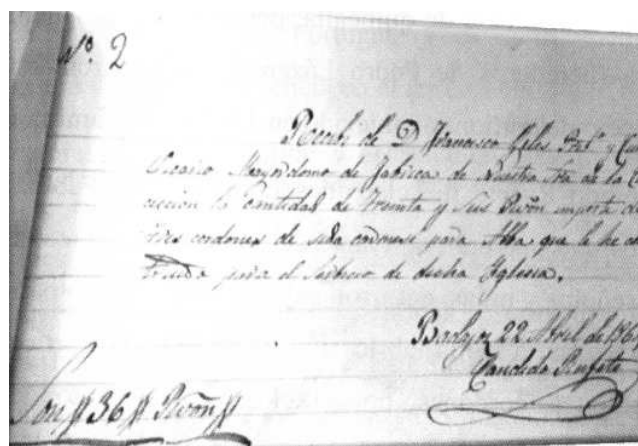 Nº. 2
Recibí de D. Francisco Giles Prbº. y Cu
Ecónomo Mayordomo de fabrica de Nuestra Sra de la C
cción la cantidad de treinta y seis Rvõn importe
tres cordones de seda para Alba, que le he
para el Servicio de dicha Yglesia.
Badajoz 22 Abril de 186
Candido Rufete
Son # 36 # Rvõn #